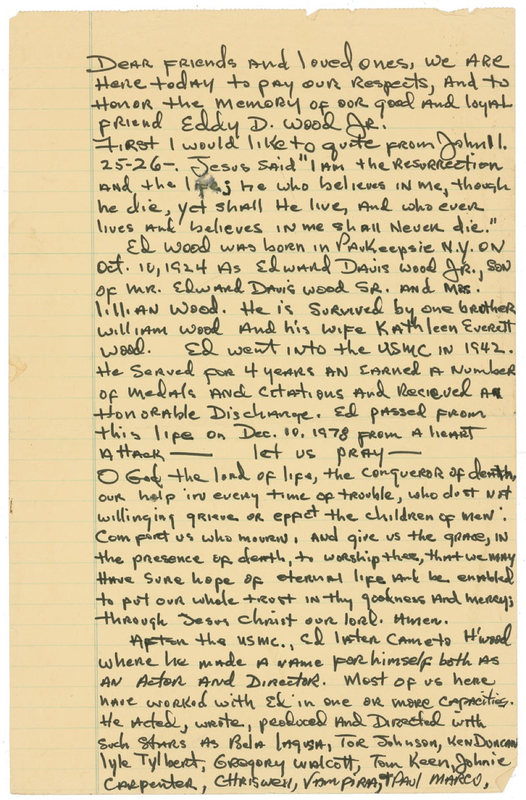 Dear friends and loved ones, we are
here today to pay our respects, and to
honor the memory of our good and loyal
friend Eddy D. Wood Jr.
First I would like to quite from John 11.
25-26-. Jesus said "I am the resurrection
and, the life; he who believes in me, though
he die, yet shall He live, and who ever
lives and believes in me shall never die."
Ed Wood was born in Paukeepsie N.Y. on
Oct. 10, 1924 as Edward Davis Wood Jr., son
of Mr. Edward Davis Wood Sr. and Mrs.
Lillian Wood. He is survived by one brother
William Wood and his wife Kathleen Everett
Wood. Ed went into the USMC in 1942.
He served for 4 years an earned a number
of medals and citations and recieved an
Honorable Discharge. Ed passed from
this life on Dec. 10, 1978 from a heart
attack — let us pray —
O God, the lord of life, the conqueror of death,
our help in every time of trouble, who dost not
willinging grieve or effect the children of men.
Comfort us who mourn, and give us the grace, in
the presence of death, to worship thee, that we may
have sure hope of eternal life and be enabled
to put our whole trust in thy goodness and mercy;
through Jesus Christ our lord. Amen.
After the USMC., Ed later came to H'wood
where he made a name for himself both as
an Actor and Director. Most of us here
have worked with Ed in one or more capacities.
He acted, wrote, produced and Directed with
such stars as Bela Lagusa, Tor Johnson, Ken Duncan
Lyle Tylbert, Gregory Walcott, Tom Keen, Johnie
Carpenter, Chriswell, Vampira, + Paul Marco,